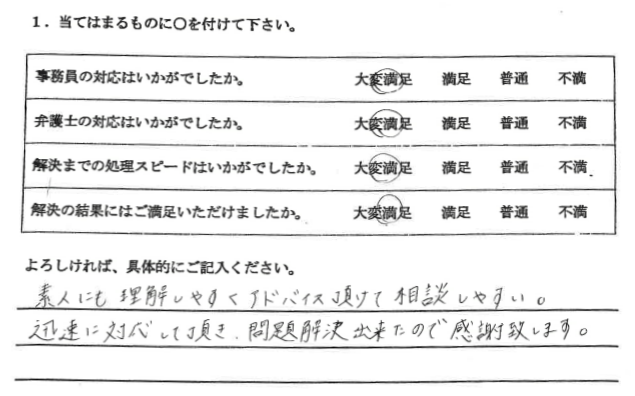 1．当てはまるものに○を付けて下さい。
事務員の対応はいかがでしたか。 大変満足 満足 普通 不満
弁護士の対応はいかがでしたか。 大変満足 満足 普通 不満
解決までの処理スピードはいかがでしたか。 大変満足 満足 普通 不満
解決の結果にはご満足いただけましたか。 大変満足 満足 普通 不満
よろしければ、具体的にご記入ください。
素人にも理解しやすくアドバイス頂けて相談しやすい。
迅速に対応して頂き、問題解決出来たので感謝致します。